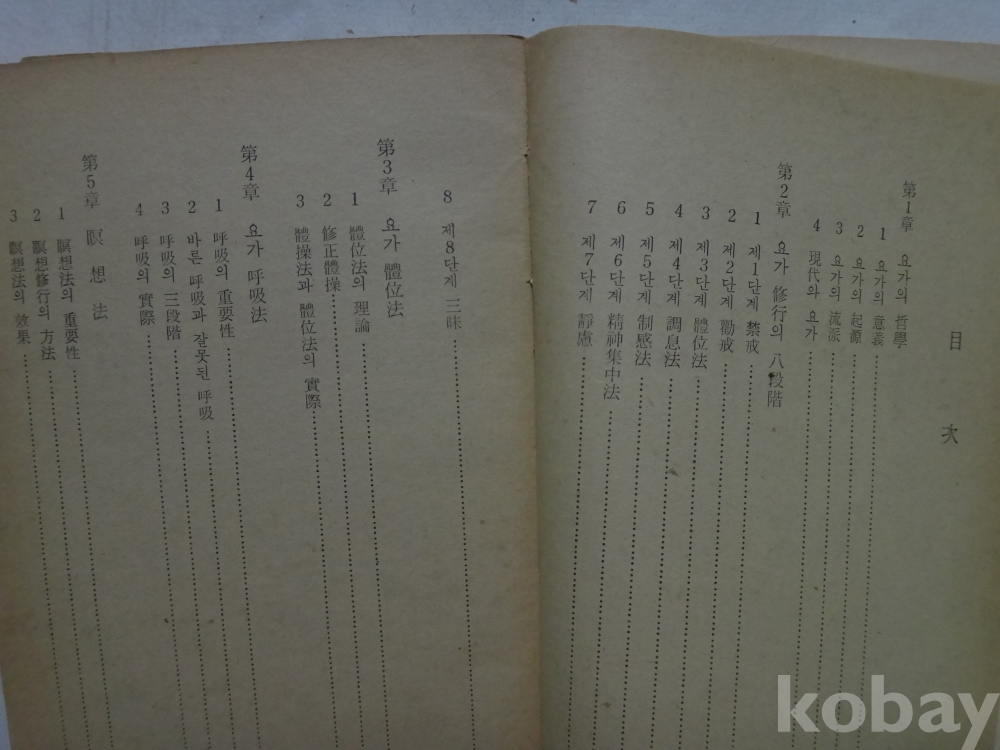 目 次
第1章 요가의 哲學
1 요가의 意義
2 요가의 起源
3 요가의 流派
4 現代와 요가
第2章 요가 修行의 八段階
1 제1단계 禁戒
2 제2단계 勸戒
3 제3단계 體位法
4 제4단계 調息法
5 제5단계 制感法
6 제6단계 精神集中法
7 제7단계 靜慮
8 제8단계 三昧
第3章 요가 體位法
1 體位法의 理論
2 修正體操
3 體操法과 體位法의 實際
第4章 요가 呼吸法
1 呼吸의 重要性
2 바른 呼吸과 잘못된 呼吸
3 呼吸의 三段階
4 呼吸의 實際
第5章 瞑想法
1 瞑想法의 重要性
2 瞑想修行의 方法
3 瞑想法의 效果
kobay